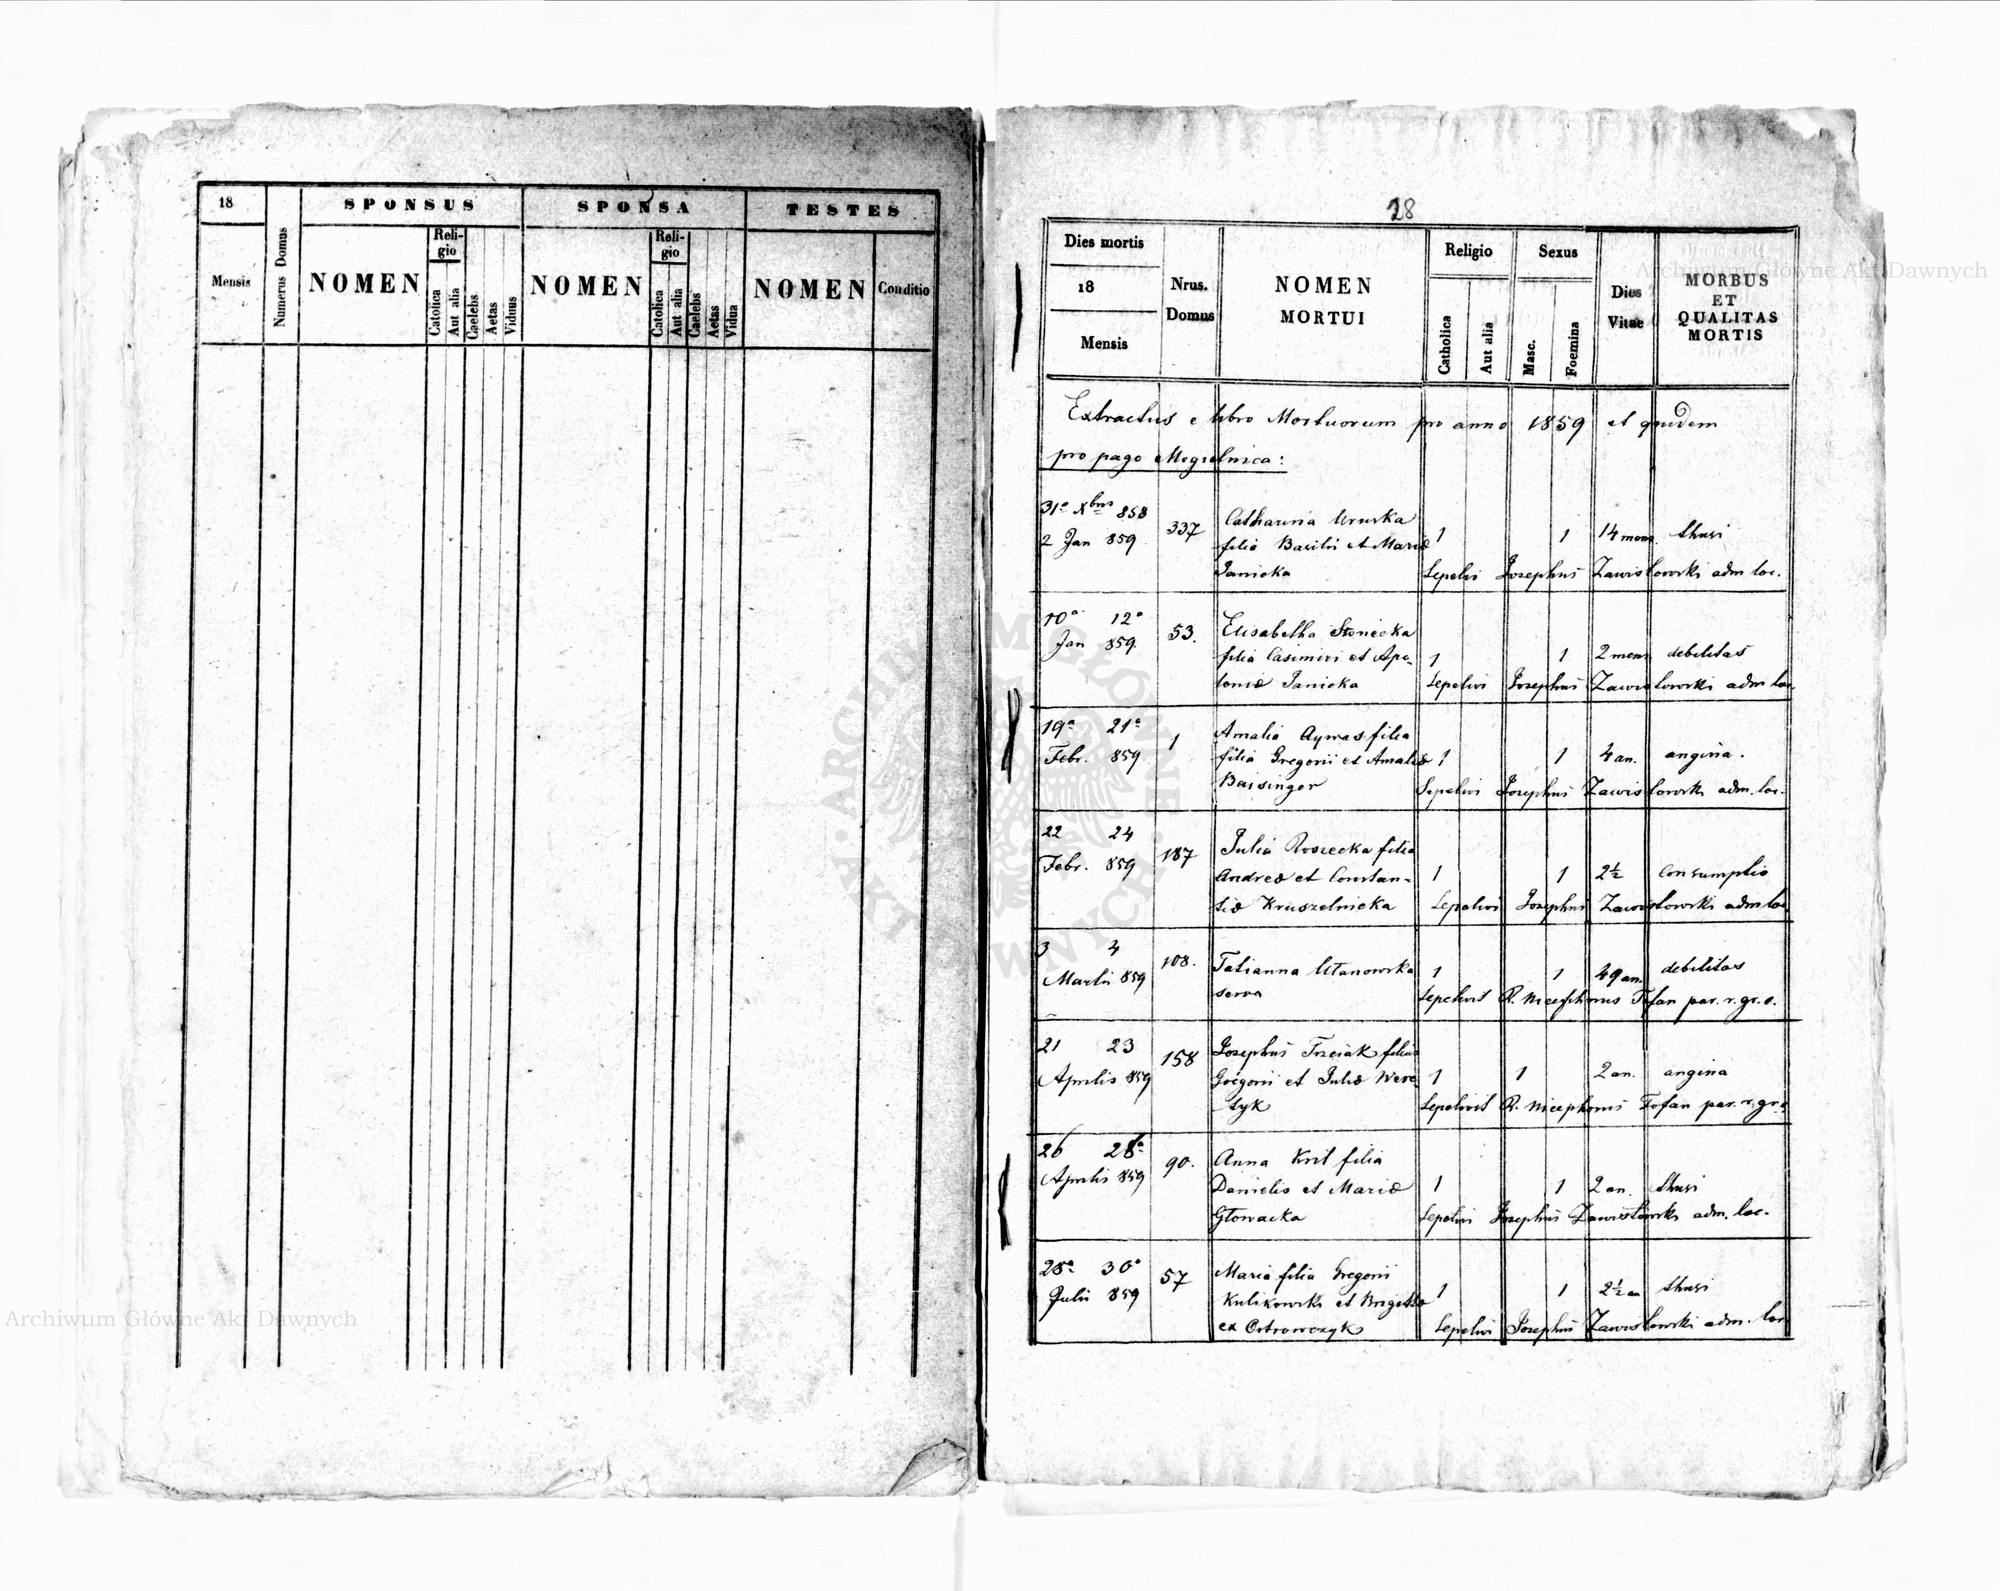 18
Mensis
Numerus Domus
SPONSUS
NOMEN
Reli-
gio
Catolica
Aut alia
Caelebs
Aetas
Viduus
SPONSA
NOMEN
Reli-
gio
Catolica
Aut alia
Caelebs
Aetas
Vidua
TESTES
NOMEN
Conditio
28
Dies mortis
18
Mensis
Nrus.
Domus
NOMEN
MORTUI
Religio
Catholica
Aut alia
Sexus
Masc.
Foemina
Dies
Vitae
MORBUS
ET
QUALITAS
MORTIS
Extractus e libro Mortuorum pro anno 1859 et quidem
pro pago Mogielnica:
31a Xbris 858
2 Jan 859
337
Catharina
filia Basilii et Mariæ
Janicka
1
1
14 mens
tussi
Sepelivi Josephus Zawisłowski adm loc.
10a 12a
Jan 859.
53.
Elisabetha Słonicka
filia Casimiri et Apo-
loniæ Janicka
1
1
2 mens
debilitas
Sepelivi Josephus Zawisłowski adm loc.
19a 21a
Febr. 859
1
Amalia Aywas filia
filia Gregorii et Amaliæ
Baisinger
1
1
4 an.
angina.
Sepelivi Josephus Zawisłowski adm. loc.
22 24
Febr. 859
187
Julia Roszecka filia
Andreæ et Constan-
tiæ Kruszelnicka
1
1
2½
Consumptio
Sepelivi Josephus Zawisłowski adm loc.
3 4
Martii 859
108.
Tatianna Ułanowska
serva
1
1
49 an.
debilitas
Sepelivit R. Nicephorus Tofan par. r. gr. c.
21 23
Aprilis 859
158
Josephus Trzciak filius
Gregorii et Juliæ Were-
tyk
1
1
2 an.
angina
Sepelivit R. Nicephorus Tofan par. r. gr. c.
26 28a
Aprilis 859
90.
Anna Kril filia
Danielis et Mariæ
Głowacka
1
1
2 an.
tussi
Sepelivi Josephus Zawisłowski adm. loc.
28a 30a
Julii 859
57
Maria filia Gregorii
Kulikowski et Brigittæ
ex Ostrowczyk
1
1
2½ an
tussi
Sepelivi Josephus Zawisłowski adm. loc
Archiwum Główne Akt Dawnych
Archiwum Główne Akt Dawnych
ARCHIWUM GŁÓWNE · AKT DAWNYCH ·